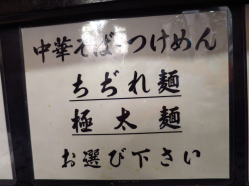 中華そば・つけめん
ちぢれ麺
極太麺
お選び下さい